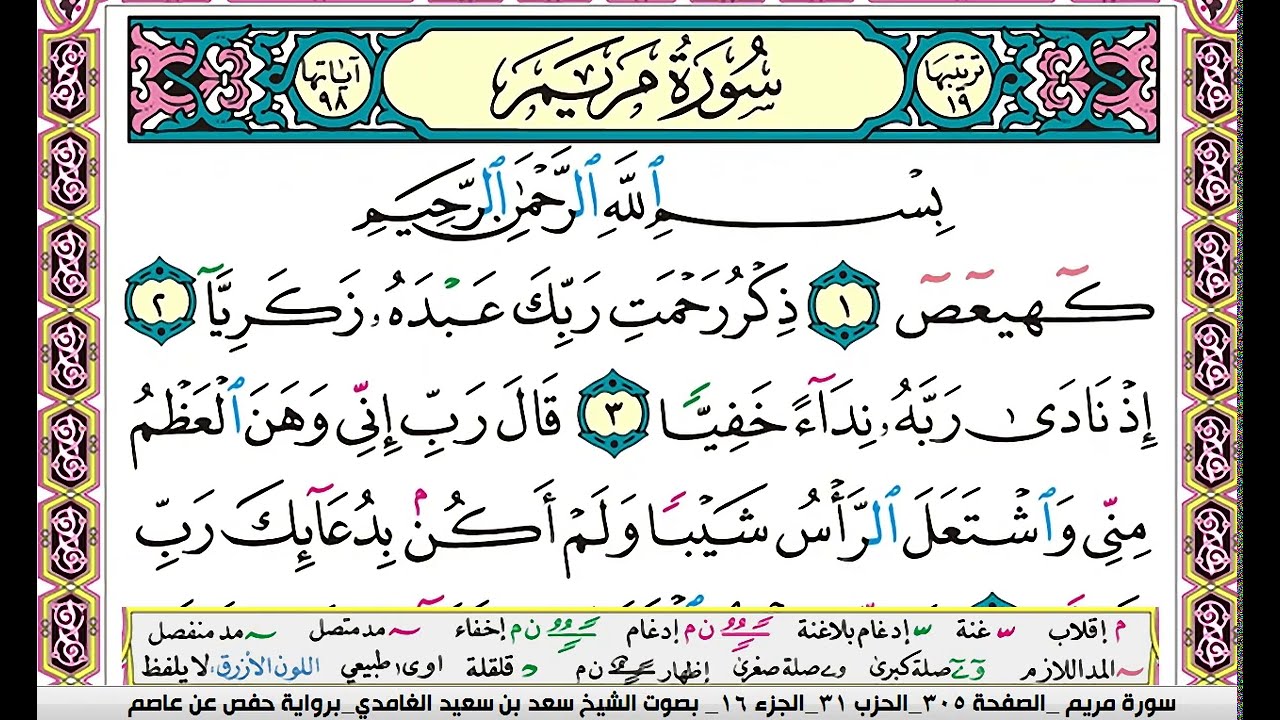 ترتيبها ١٩ سُورَةُ مَرْيَمَ آياتها ٩٨
بِسْمِ ٱللَّهِ ٱلرَّحْمَٰنِ ٱلرَّحِيمِ
كٓهيعٓصٓ ١ ذِكْرُ رَحْمَتِ رَبِّكَ عَبْدَهُۥ زَكَرِيَّآ ٢
إِذْ نَادَىٰ رَبَّهُۥ نِدَآءً خَفِيًّا ٣ قَالَ رَبِّ إِنِّى وَهَنَ ٱلْعَظْمُ
مِنِّى وَٱشْتَعَلَ ٱلرَّأْسُ شَيْبًا وَلَمْ أَكُنۢ بِدُعَآئِكَ رَبِّ
م إقلاب س غنة س إدغام بلاغنة ن م إدغام ن م إخفاء مد متصل مد منفصل
المد اللازم صلة كبرى صلة صغرى إظهار ن م د قلقلة اوى طبيعي اللون الأزرق لا يلفظ
سورة مريم _الصفحة ٣٠٥_الحزب ٣١_الجزء ١٦_ بصوت الشيخ سعد بن سعيد الغامدي_برواية حفص عن عاصم